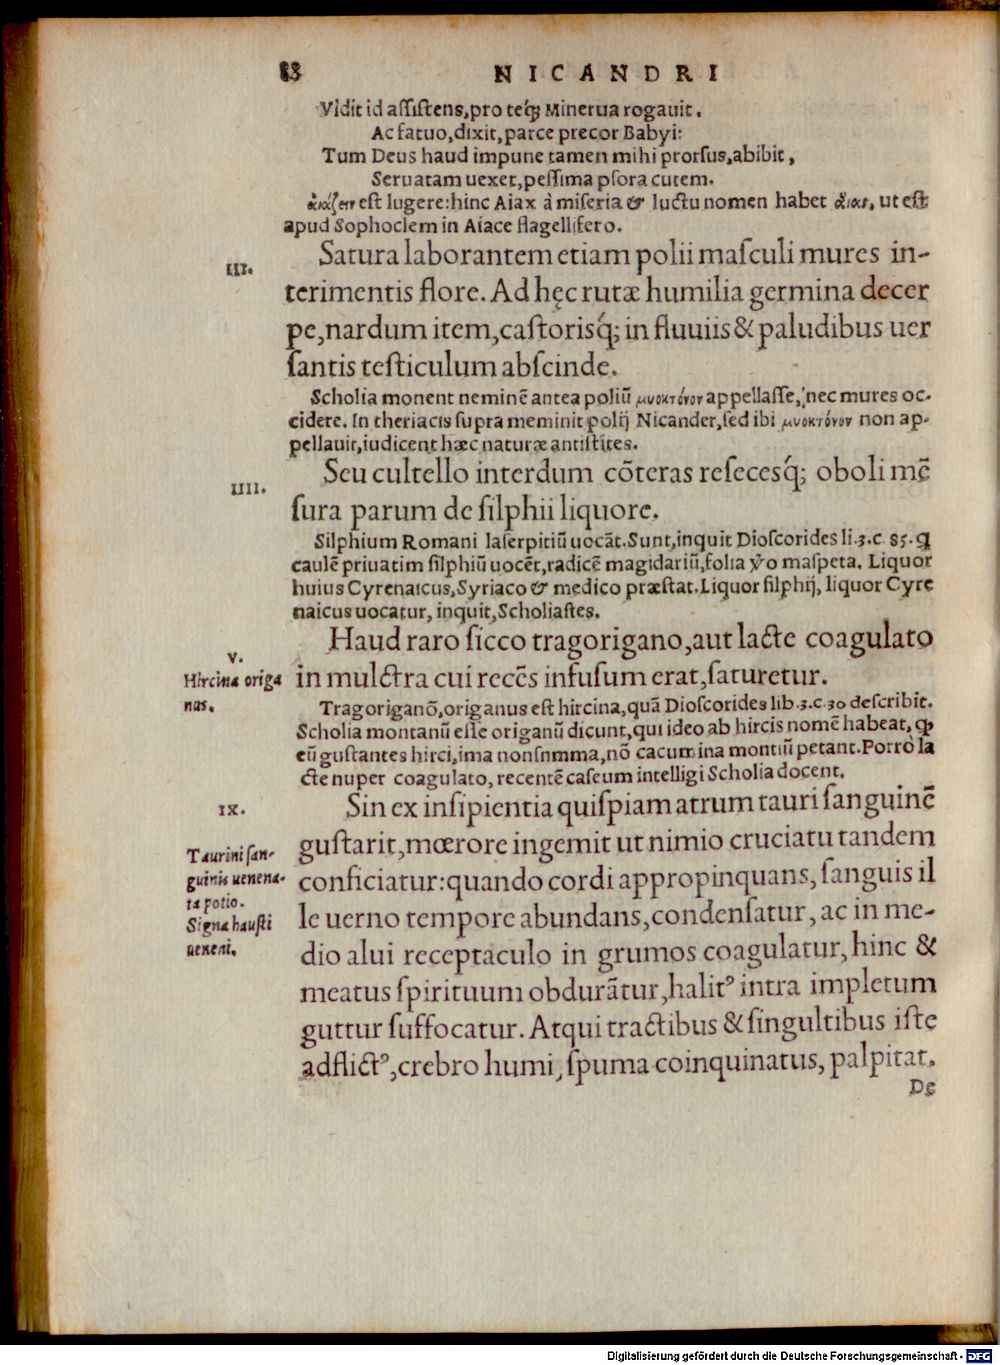 83 NICANDRI
Vidit id aſſiſtens, pro teq; Minerua rogauit.
Ac fatuo, dixit, parce precor Babyi:
Tum Deus haud impune tamen mihi prorſus, abibit,
Seruatam uexet, peſſima pſora cutem.
αἰάζειν eſt lugere: hinc Aiax à miſeria & luctu nomen habet αἴας, ut eſt
apud Sophoclem in Aiace flagellifero.
III.
Satura laborantem etiam polii maſculi mures in-
terimentis flore. Ad hęc rutæ humilia germina decer
pe, nardum item, caſtorisq́; in fluuiis & paludibus uer
ſantis teſticulum abſcinde.
Scholia monent neminẽ antea poliũ μυοκτόνον appellaſſe, nec mures oc-
cidere. In theriacis ſupra meminit polij Nicander, ſed ibi μυοκτόνον non ap-
pellauit, iudicent hæc naturæ antiſtites.
IIII.
Seu cultello interdum cõteras reſecesq́; oboli mẽ
ſura parum de ſilphii liquore.
Silphium Romani laſerpitiũ uocãt. Sunt, inquit Dioſcorides li. 3. c. 85. q
caulẽ priuatim ſilphiũ uocẽt, radicẽ magidariũ, folia ỹo maſpeta. Liquor
huius Cyrenaicus, Syriaco & medico præſtat. Liquor ſilphij, liquor Cyre
naicus uocatur, inquit, Scholiaſtes.
V.
Hircina origa
nus.
Haud raro ſicco tragorigano, aut lacte coagulato
in mulctra cui recẽs infuſum erat, ſaturetur.
Tragoriganõ, origanus eſt hircina, quã Dioſcorides lib. 3. c. 30 deſcribit.
Scholia montanũ eſſe origanũ dicunt, qui ideo ab hircis nomẽ habeat, ꝙ
eũ guſtantes hirci, ima non snmma, nõ cacumina montiũ petant. Porro la
cte nuper coagulato, recentẽ caſeum intelligi Scholia docent.
IX.
Taurini ſan-
guinis uenena-
ta potio.
Signa hauſti
ueneni.
Sin ex inſipientia quiſpiam atrum tauri ſanguinẽ
guſtarit, mœrore ingemit ut nimio cruciatu tandem
conficiatur: quando cordi appropinquans, ſanguis il
le uerno tempore abundans, condenſatur, ac in me-
dio alui receptaculo in grumos coagulatur, hinc &
meatus ſpirituum obdurãtur, halitꝰ intra impletum
guttur ſuffocatur. Atqui tractibus & ſingultibus iſte
adflictꝰ, crebro humi, ſpuma coinquinatus, palpitat.
De
Digitalisierung gefördert durch die Deutsche Forschungsgemeinschaft - DFG